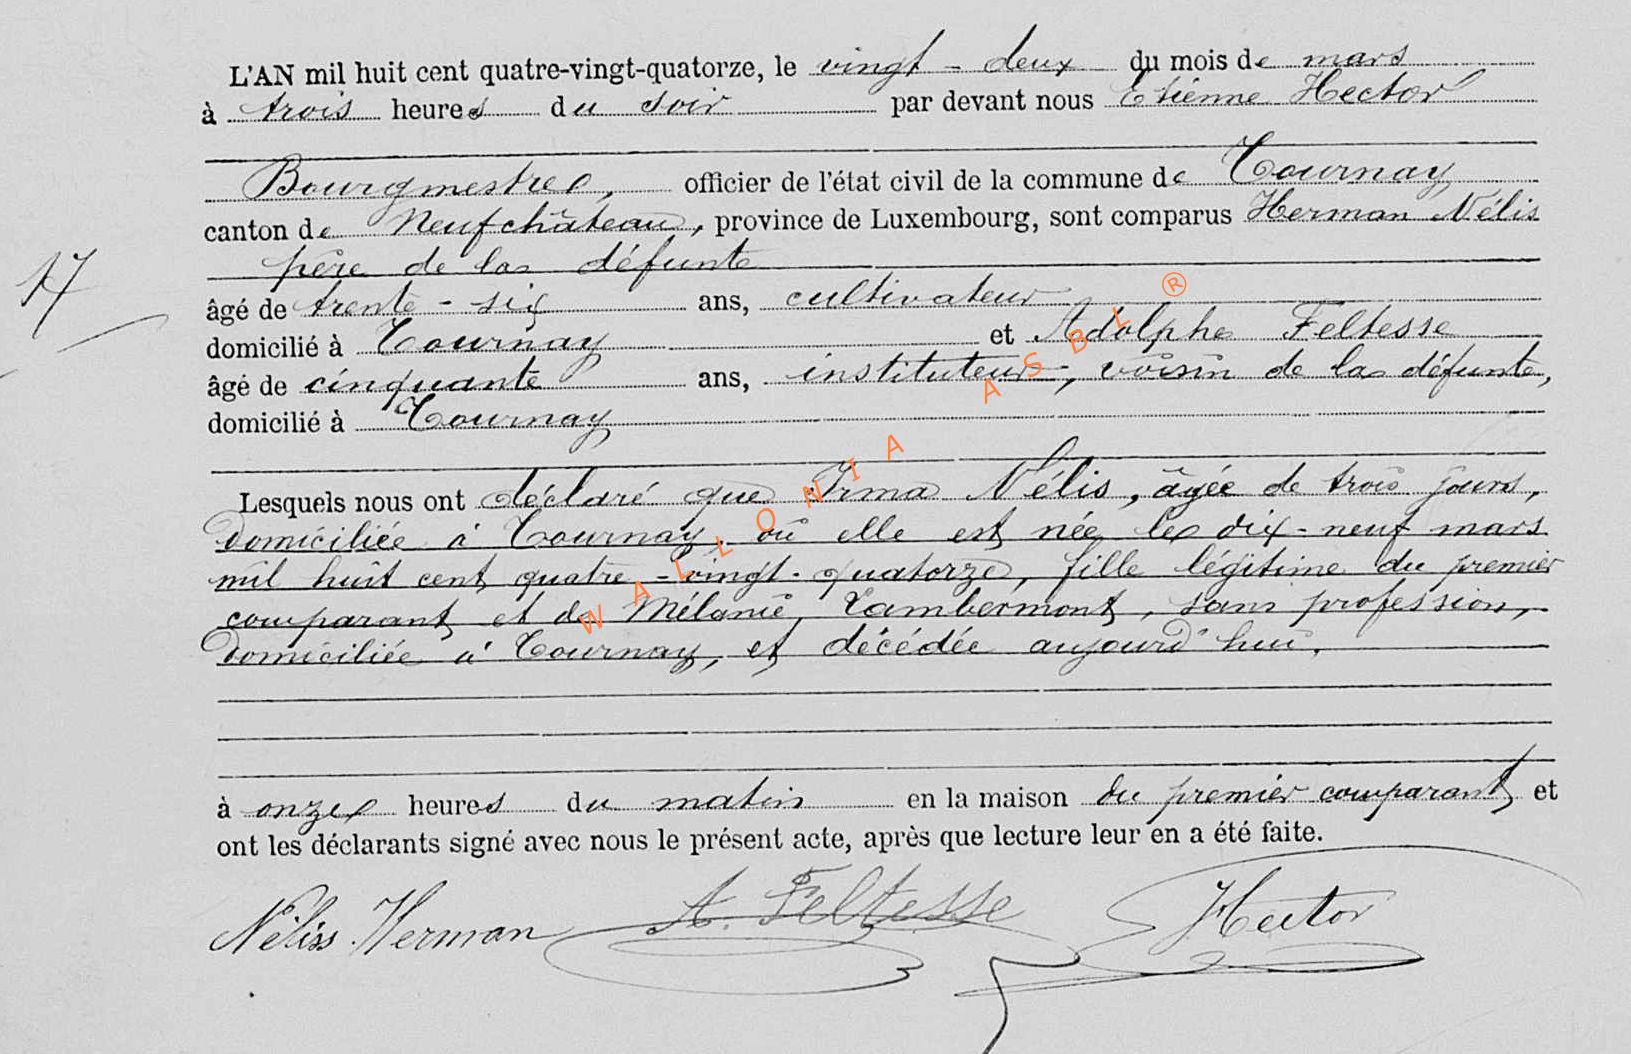 L'AN mil huit cent quatre-vingt-quatorze, le vingt-deux du mois de mars
à trois heures du soir par devant nous Etienne Hector
Bourgmestre, officier de l'état civil de la commune de Tournay
canton de Neufchâteau, province de Luxembourg, sont comparus Herman Nélis
père de la défunte
17
âgé de trente-six ans, cultivateur
domicilié à Tournay et Adolphe Feltesse
âgé de cinquante ans, instituteur, voisin de la défunte,
domicilié à Tournay
Lesquels nous ont déclaré que Irma Nélis, âgée de trois jours,
domiciliée à Tournay, où elle est née le dix-neuf mars
mil huit cent quatre-vingt-quatorze, fille légitime du premier
comparant et de Mélanie Lambermont, sans profession,
domiciliée à Tournay, et décédée aujourd'hui,
à onze heures du matin en la maison du premier comparant et
ont les déclarants signé avec nous le présent acte, après que lecture leur en a été faite.
Néliss Herman A. Feltesse Hector
WALLONIA ASBL ®